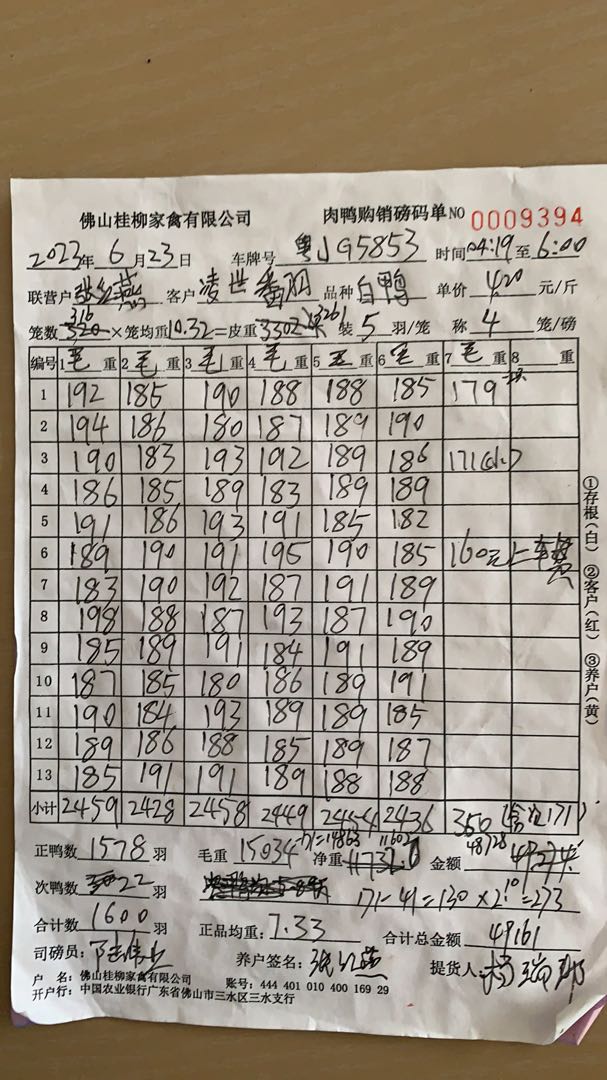 佛山桂柳家禽有限公司 肉鸭购销磅码单 NO 0009394
2023年 6月 23日 车牌号 粤J G5853 时间 04:19 至 6:00
联营户 客户 凌世番阳 品种 白鸭 单价 4.20 元/斤
316 3261
笼数 320 ×笼均重 10.32 =皮重 3302 装 5 羽/笼 称 4 笼/磅
编号 1 毛 重 2 毛 重 3 毛 重 4 毛 重 5 毛 重 6 毛 重 7 毛 重 8 重
1 192 185 190 188 188 185 179
2 194 186 180 187 189 190
3 190 183 193 192 189 186 171(次)
4 186 185 189 183 189 189
5 191 186 193 191 185 182
6 189 190 191 195 190 185 160元上车费
7 183 190 192 187 191 189
8 198 188 187 193 187 190
9 185 189 191 184 191 189
10 187 185 180 186 189 191
11 190 184 193 189 189 185
12 189 186 188 185 189 187
13 185 191 191 189 188 188
小计 2459 2428 2458 2449 2454 2436 350 (含次171)
①存根(白) ②客户(红) ③养户(黄)
171=14863 11602 48728
正鸭数 1578 羽 毛重 15034 净重 11732.0 金额 49274
次鸭数 22 羽 171-41=130×2.10=273
合计数 1600 羽 正品均重: 7.33 合计总金额 49161
司磅员: 养户签名: 张红燕 提货人: 杨瑞那
户 名: 佛山桂柳家禽有限公司 账号: 444 401 010 400 169 29
开户行: 中国农业银行广东省佛山市三水区三水支行